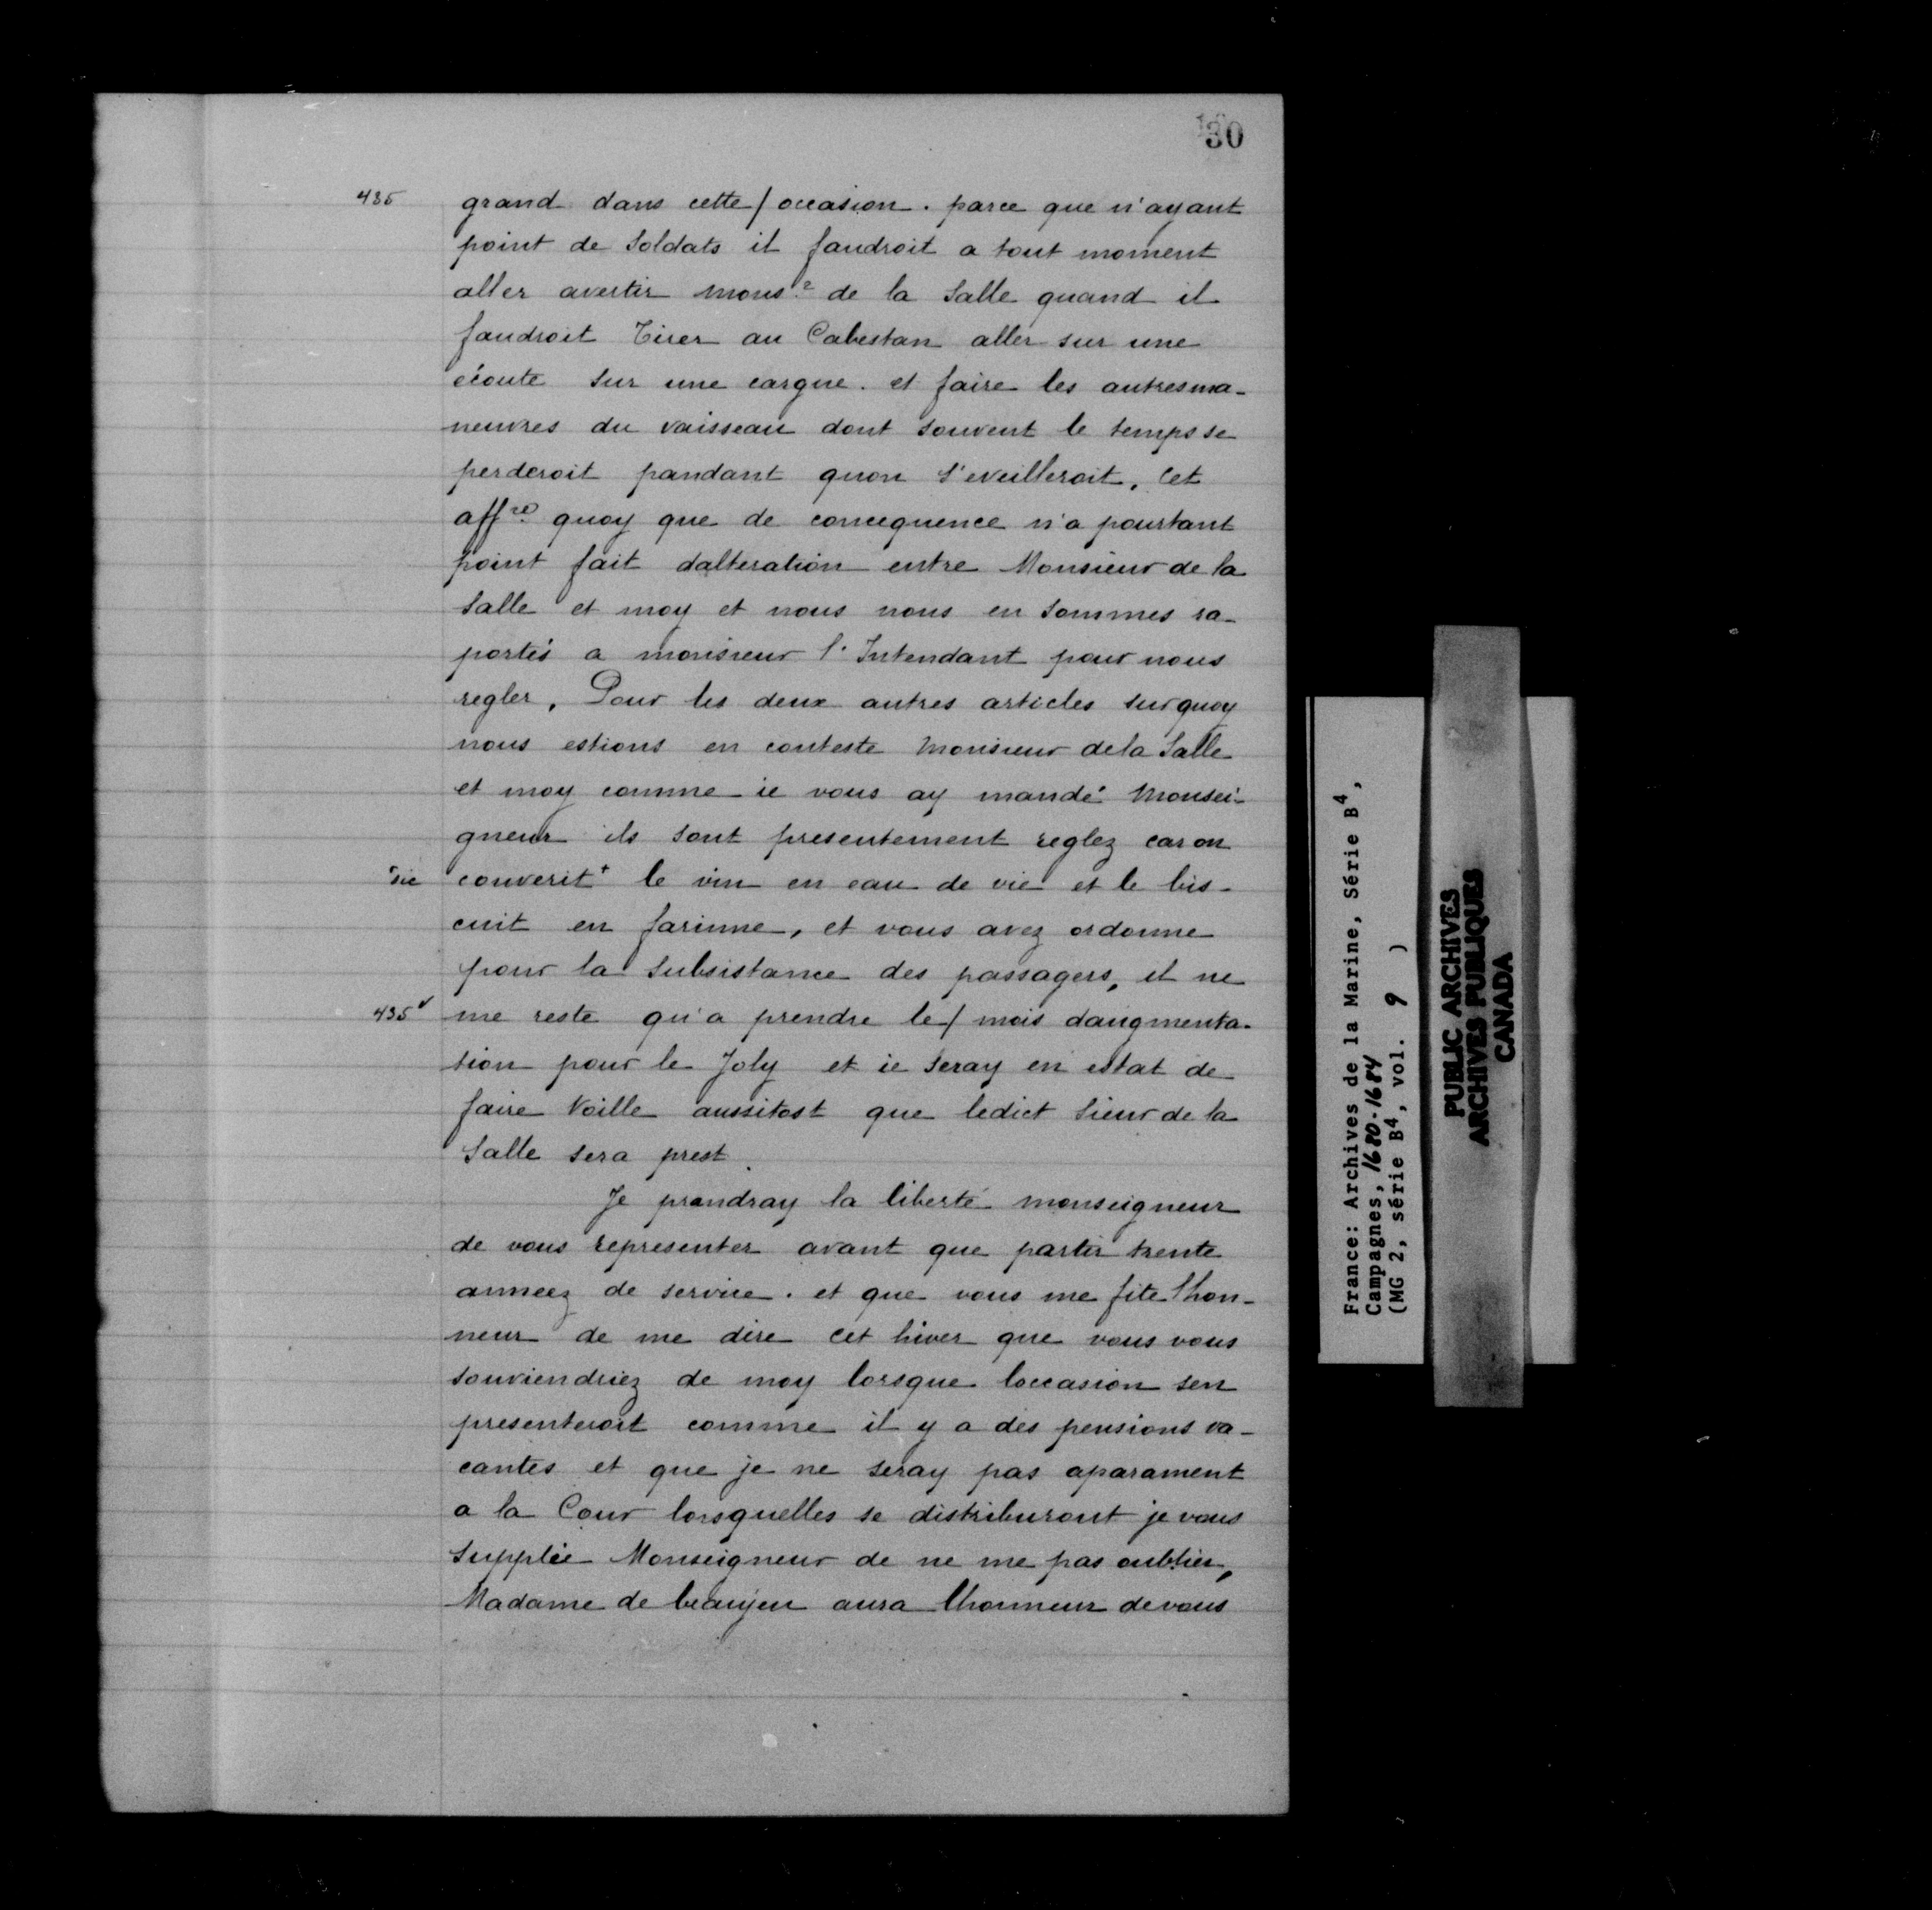 30
435 grand dans cette/occasion. parce que n'ayant
point de Soldats il faudroit a tout moment
aller avertir Mons.r de la Salle quand il
faudroit Tirer au Cabestan aller sur une
écoute Sur une cargue. et faire les autres ma-
neuvres du vaisseau dont Souvent le temps se
perderoit pandant quon S'eveilleroit, Cet
affre quoy que de concequence n'a pourtant
point fait dalteration entre Monsieur de la
Salle et moy et nous nous en Sommes ra-
portés a monsieur l'Intendant pour nous
regler. Pour les deux autres articles Sur quoy
nous estions en conteste Monsieur de la Salle
et moy comme ie vous ay mandé Monsei-
gneur ils Sont presentement reglez car on
Sic couverit+ le vin en eau de vie et le bis-
cuit en farinne, et vous avez ordonne
pour la Subsistance des passagers, il ne
435v me reste qu'a prendre le/mois daugmenta-
tion pour le Joly et ie Seray en estat de
faire Voille aussitost que ledict Sieur de la
Salle sera prest.
Je prandray la liberté monseigneur
de vous representer avant que partir trente
anneez de service. et que vous me fite lhon-
neur de me dire cet hiver que vous vous
souviendriez de moy lorsque loccasion sen
presenteroit comme il y a des pensions va-
cantes et que je ne seray pas aparament
a la Cour lorsquelles se distriburont je vous
Supplie Monseigneur de ne me pas oublier,
Madame de beaujeu aura lhonneur de vous
France: Archives de la Marine, Série B4,
Campagnes, 1680-1684
(MG 2, série B4, vol. 9 )
PUBLIC ARCHIVES
ARCHIVES PUBLIQUES
CANADA